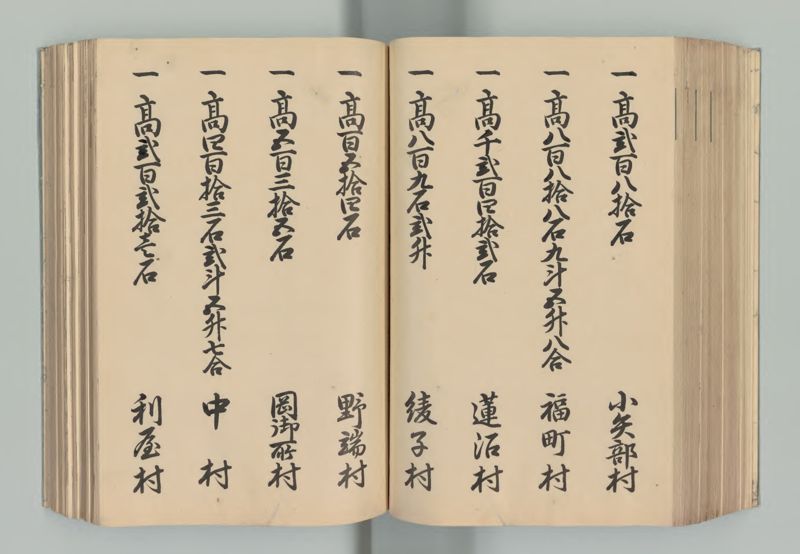 一 高弐百八拾石 小矢部村
一 高八百八拾八石九斗五升八合 福町村
一 高千弐百四拾弐石 蓮沼村
一 高八百九石弐升 綾子村
一 高百五拾四石 野端村
一 高五百三拾五石 岡御所村
一 高四百拾三石弐斗五升七合 中村
一 高弐百弐拾壱石 利屋村